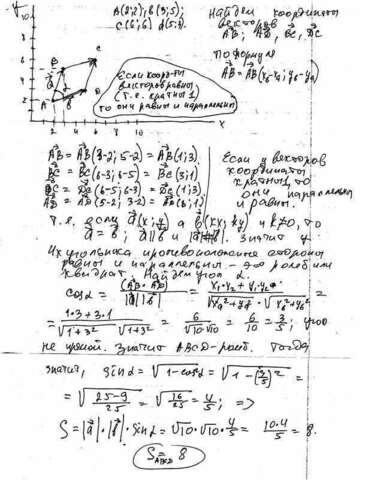 A(2;2), B(3;5);
C(6;6) D(5;3).
Найдем координаты
векторов
AB; AD, BC, DC
По формуле
AB = AB(x₈-xₐ; y₈-yₐ)
Если коор-ты
векторов равны
(т.е. кратны 1)
то они равны и параллельны
AB = AB(3-2; 5-2) = AB(1; 3)
BC = BC(6-3; 6-5) = BC(3; 1)
DC = DC(6-5; 6-3) = DC(1; 3)
AD = AD(5-2; 3-2) =
Если у векторов
координаты
кратны 1, то
они параллельны
и равны.
Т.е. если a(x; y) а b(kx; ky) и k≠0, то
a = b; a∥b и Значит у
4х угольника противоположные стороны
равны и параллельны - это ромб или
квадрат. Найдем угол α.
cosα = (AB·AD) / |a|·|b| = x₁·x₂ + y₁·y₂ / =
= 1·3+3·1 / √1+3² √1+3² = 6 / √10·√10 = 6/10 = 3/5; угол
не прямой. Значит ABCD-ромб. Тогда
значит, sinα = √1-cos²α = √1-(3/5)² =
= √25-9/25 = √16/25 = 4/5; =>
S = |a|·|b|·sinα = √10·√10·4/5 = 10·4/5 = 8.
S ABCD = 8